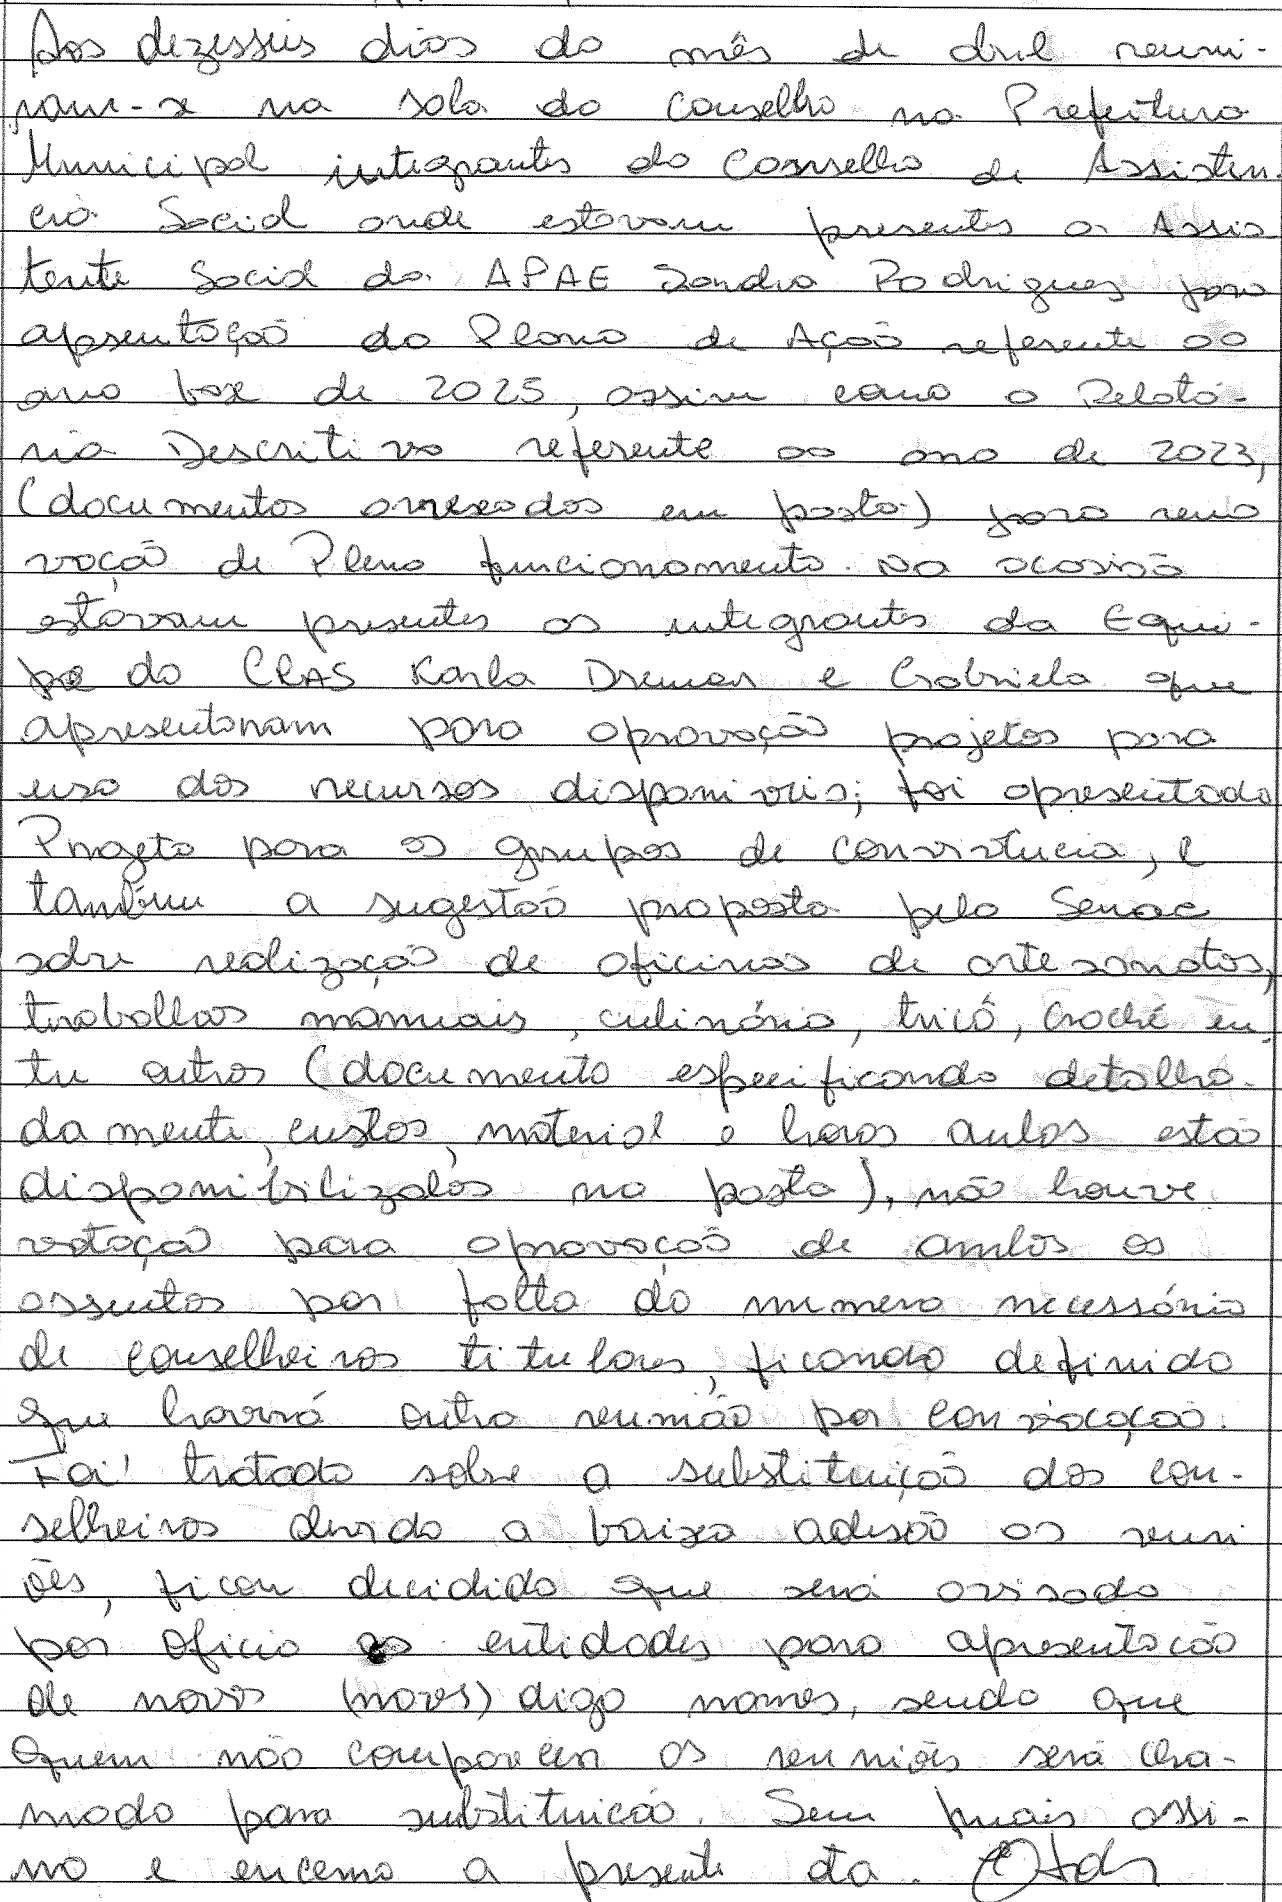 Aos dezesseis dias do mês de abril reuni-
ram-se na sala do Conselho na Prefeitura
Municipal integrantes do Conselho de Assistên-
cia Social onde estavam presentes a Assis
tente Social da APAE Sandra Rodrigues para
apsentação do Plano de Ação referente ao
ano base de 2025, assim como o Relató-
rio Descritivo referente ao ano de 2023,
(documentos anexados em pasta) para reno
vação de Pleno funcionamento. Na ocasião
estavam presentes os integrantes da Equi-
pe do CRAS Karla e Gabriela que
apresentaram para aprovação projetos para
uso dos recursos disponíveis; foi apresentado
Projeto para os grupos de convivência, e
também a sugestão proposta pelo Senac
sobre realização de oficinas de artesanatos,
trabalhos manuais, culinária, tricô, Croché en-
tre outros (documento especificando detalha-
damente, custos, material e horas aulas estão
disponibilizados na pasta), não houve
votação para aprovação de ambos os
assuntos por falta do numero necessário
de conselheiros titulares, ficando definido
que haverá outra reunião por convocação.
Foi tratado sobre a substituição dos con-
selheiros devido a baixa adesão as reuni
ões, ficou decidido que será avisado
por oficio as entidades para apresentacão
de novos (noves) digo nomes, sendo que
quem não comparecer as reuniões será cha-
mado para substituicão. Sem mais assi-
no e encerro a presente ata.